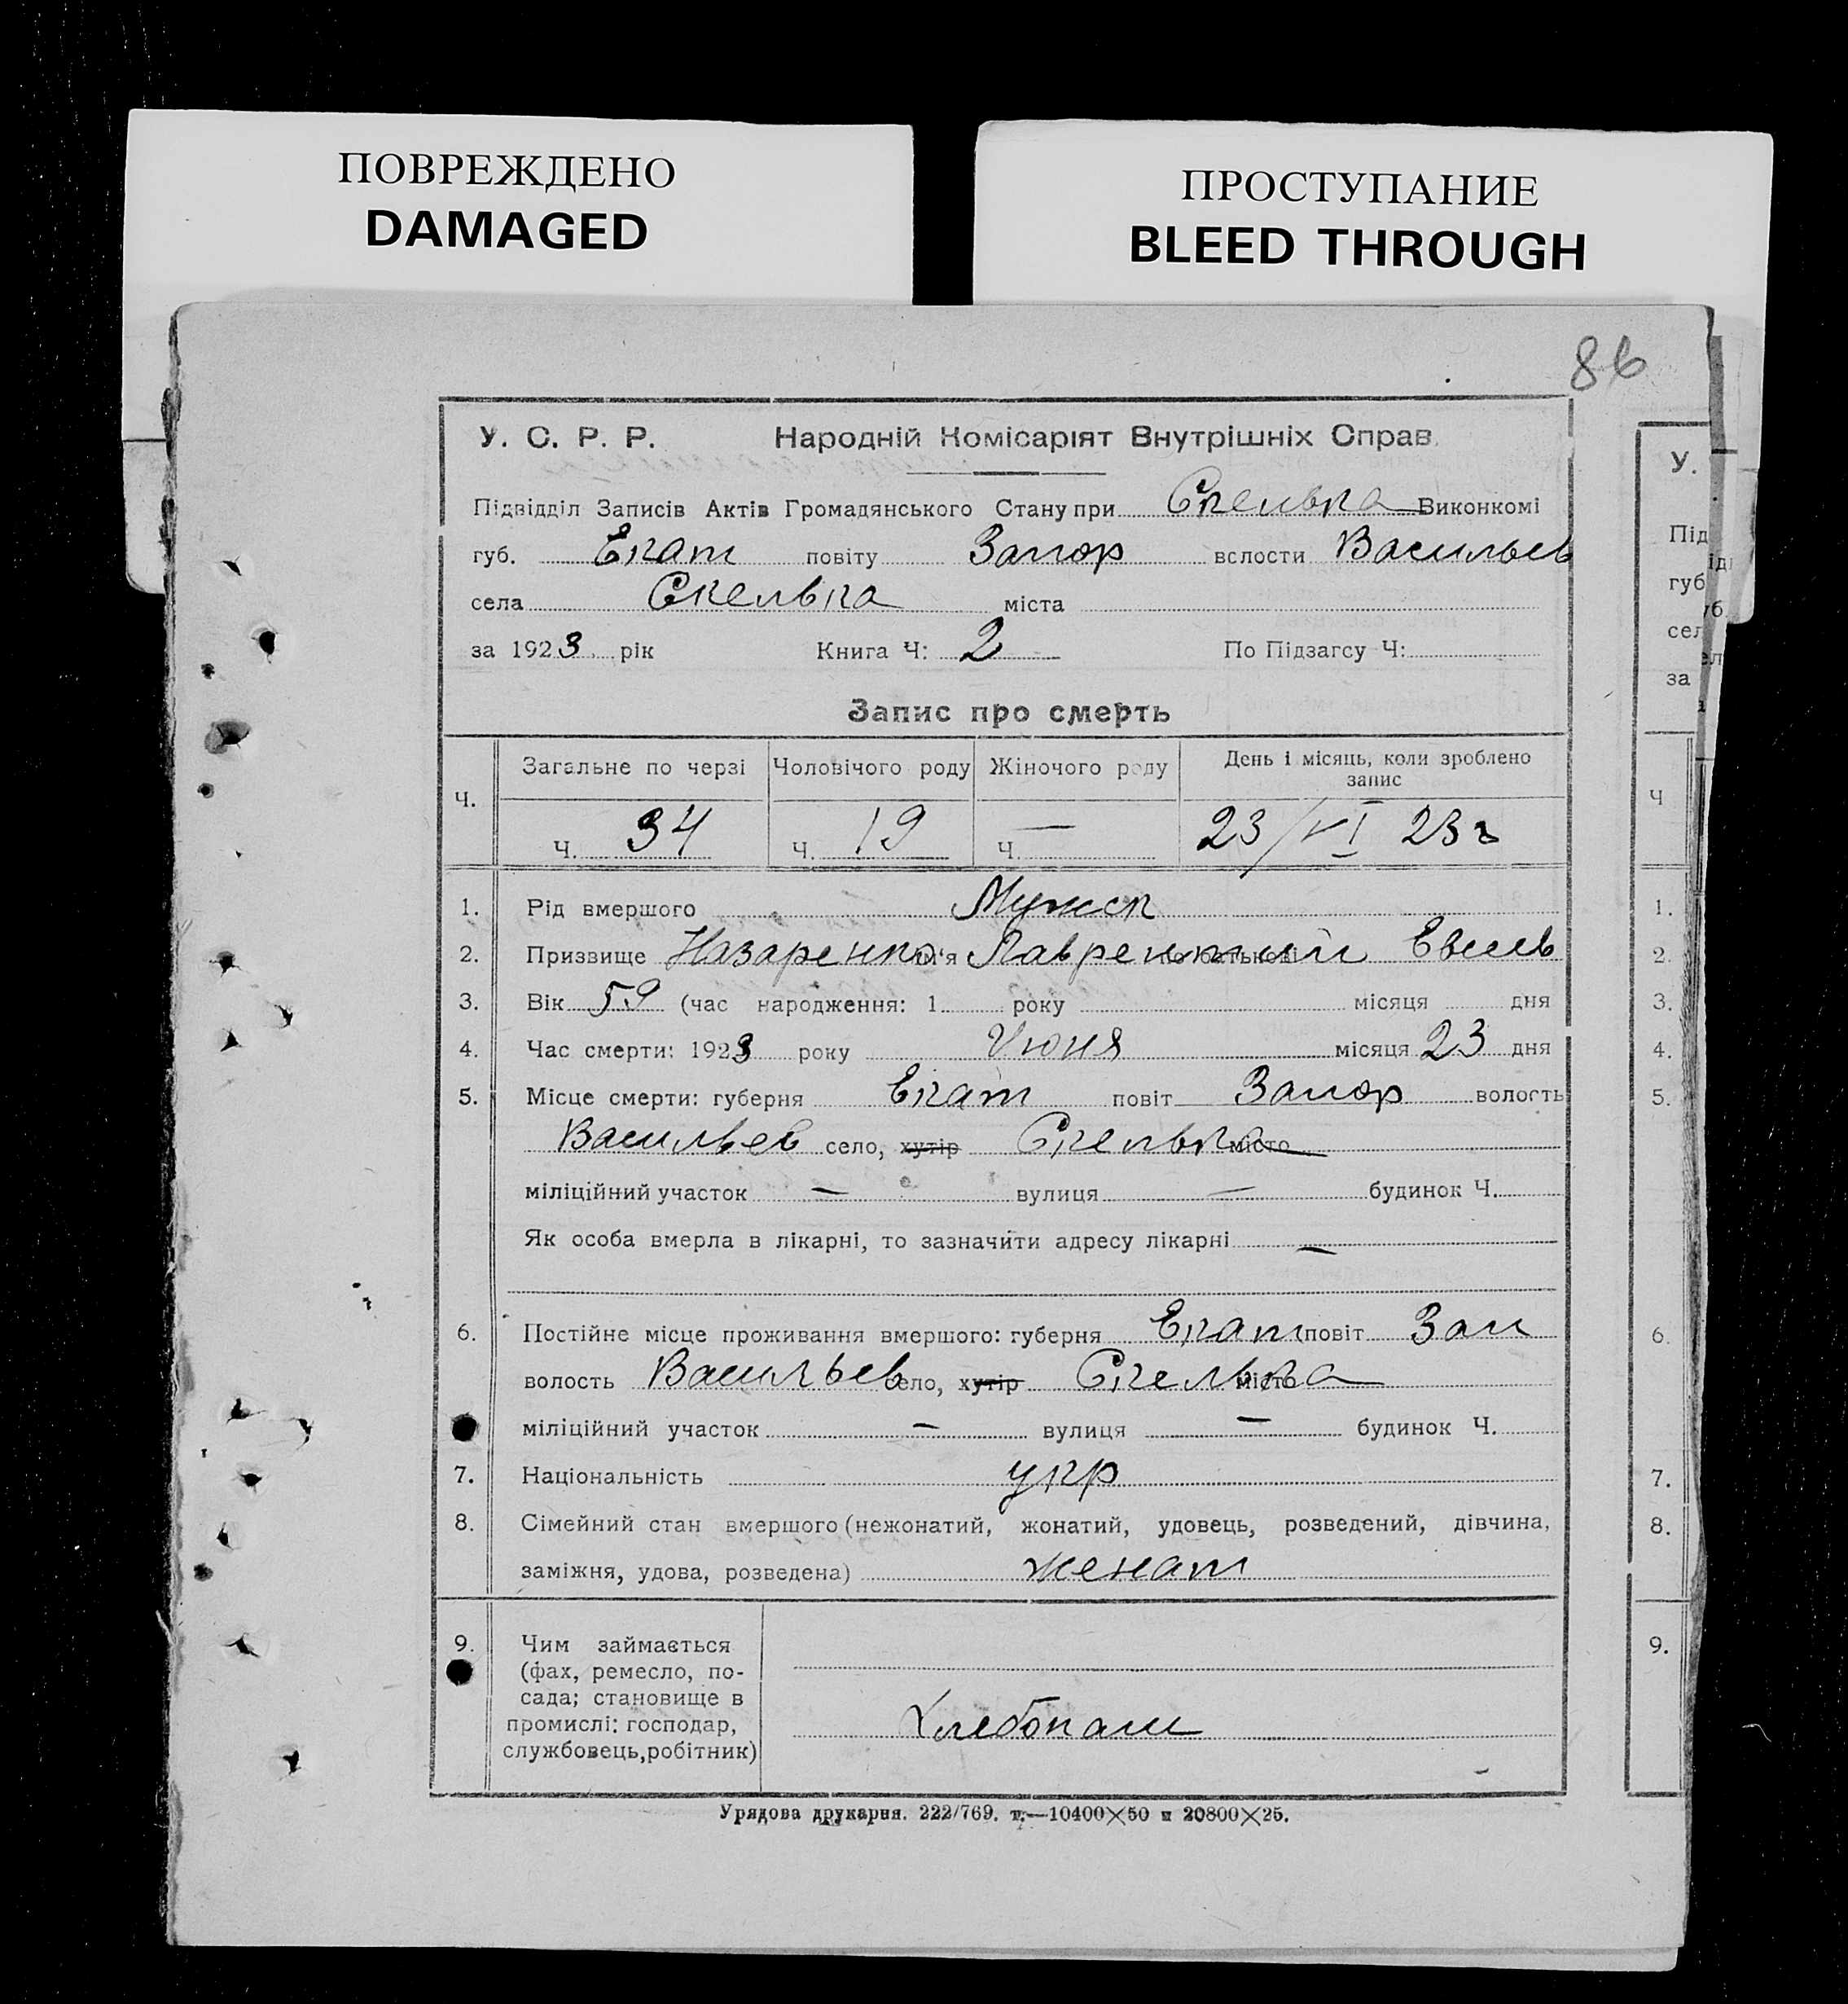 ПОВРЕЖДЕНО
DAMAGED
ПРОСТУПАНИЕ
BLEED THROUGH
86
У. С. Р. Р. Народній Комісаріят Внутрішніх Справ.
Підвідділ Записів Актів Громадянського Стану при Скелька Виконкомі
губ. Екат повіту Запор вслости Васильев
села Скелька міста
за 1923 рік Книга Ч: 2 По Підзагсу Ч:
Запис про смерть
Ч. Загальне по черзі Чоловічого роду Жіночого роду День і місяць, коли зроблено запис
Ч. 34 Ч. 19 Ч. — 23/VI 23 г
1. Рід вмершого Мужск
2. Призвище Назаренко ім'я Лаврентий по батькові Евсеев
3. Вік 59 (час народження: 1 року місяця дня
4. Час смерти: 1923 року Июня місяця 23 дня
5. Місце смерти: губерня Екат повіт Запор волость
Васильев село, хутір Скелька місто
міліційний участок — вулиця — будинок Ч.
Як особа вмерла в лікарні, то зазначити адресу лікарні —
6. Постійне місце проживання вмершого: губерня Екат повіт Зап
волость Васильев село, хутір Скелька місто
міліційний участок — вулиця — будинок Ч.
7. Національність укр
8. Сімейний стан вмершого (нежонатий, жонатий, удовець, розведений, дівчина,
заміжня, удова, розведена) женат
9. Чим займається
(фах, ремесло, по-
сада; становище в
промислі: господар,
службовець, робітник)
Хлебопаш
Урядова друкарня. 222/769. т.—10400×50 и 20800×25.
У.
Під
губ
сел
за
Ч
1.
2.
3.
4.
5.
6.
7.
8.
9.